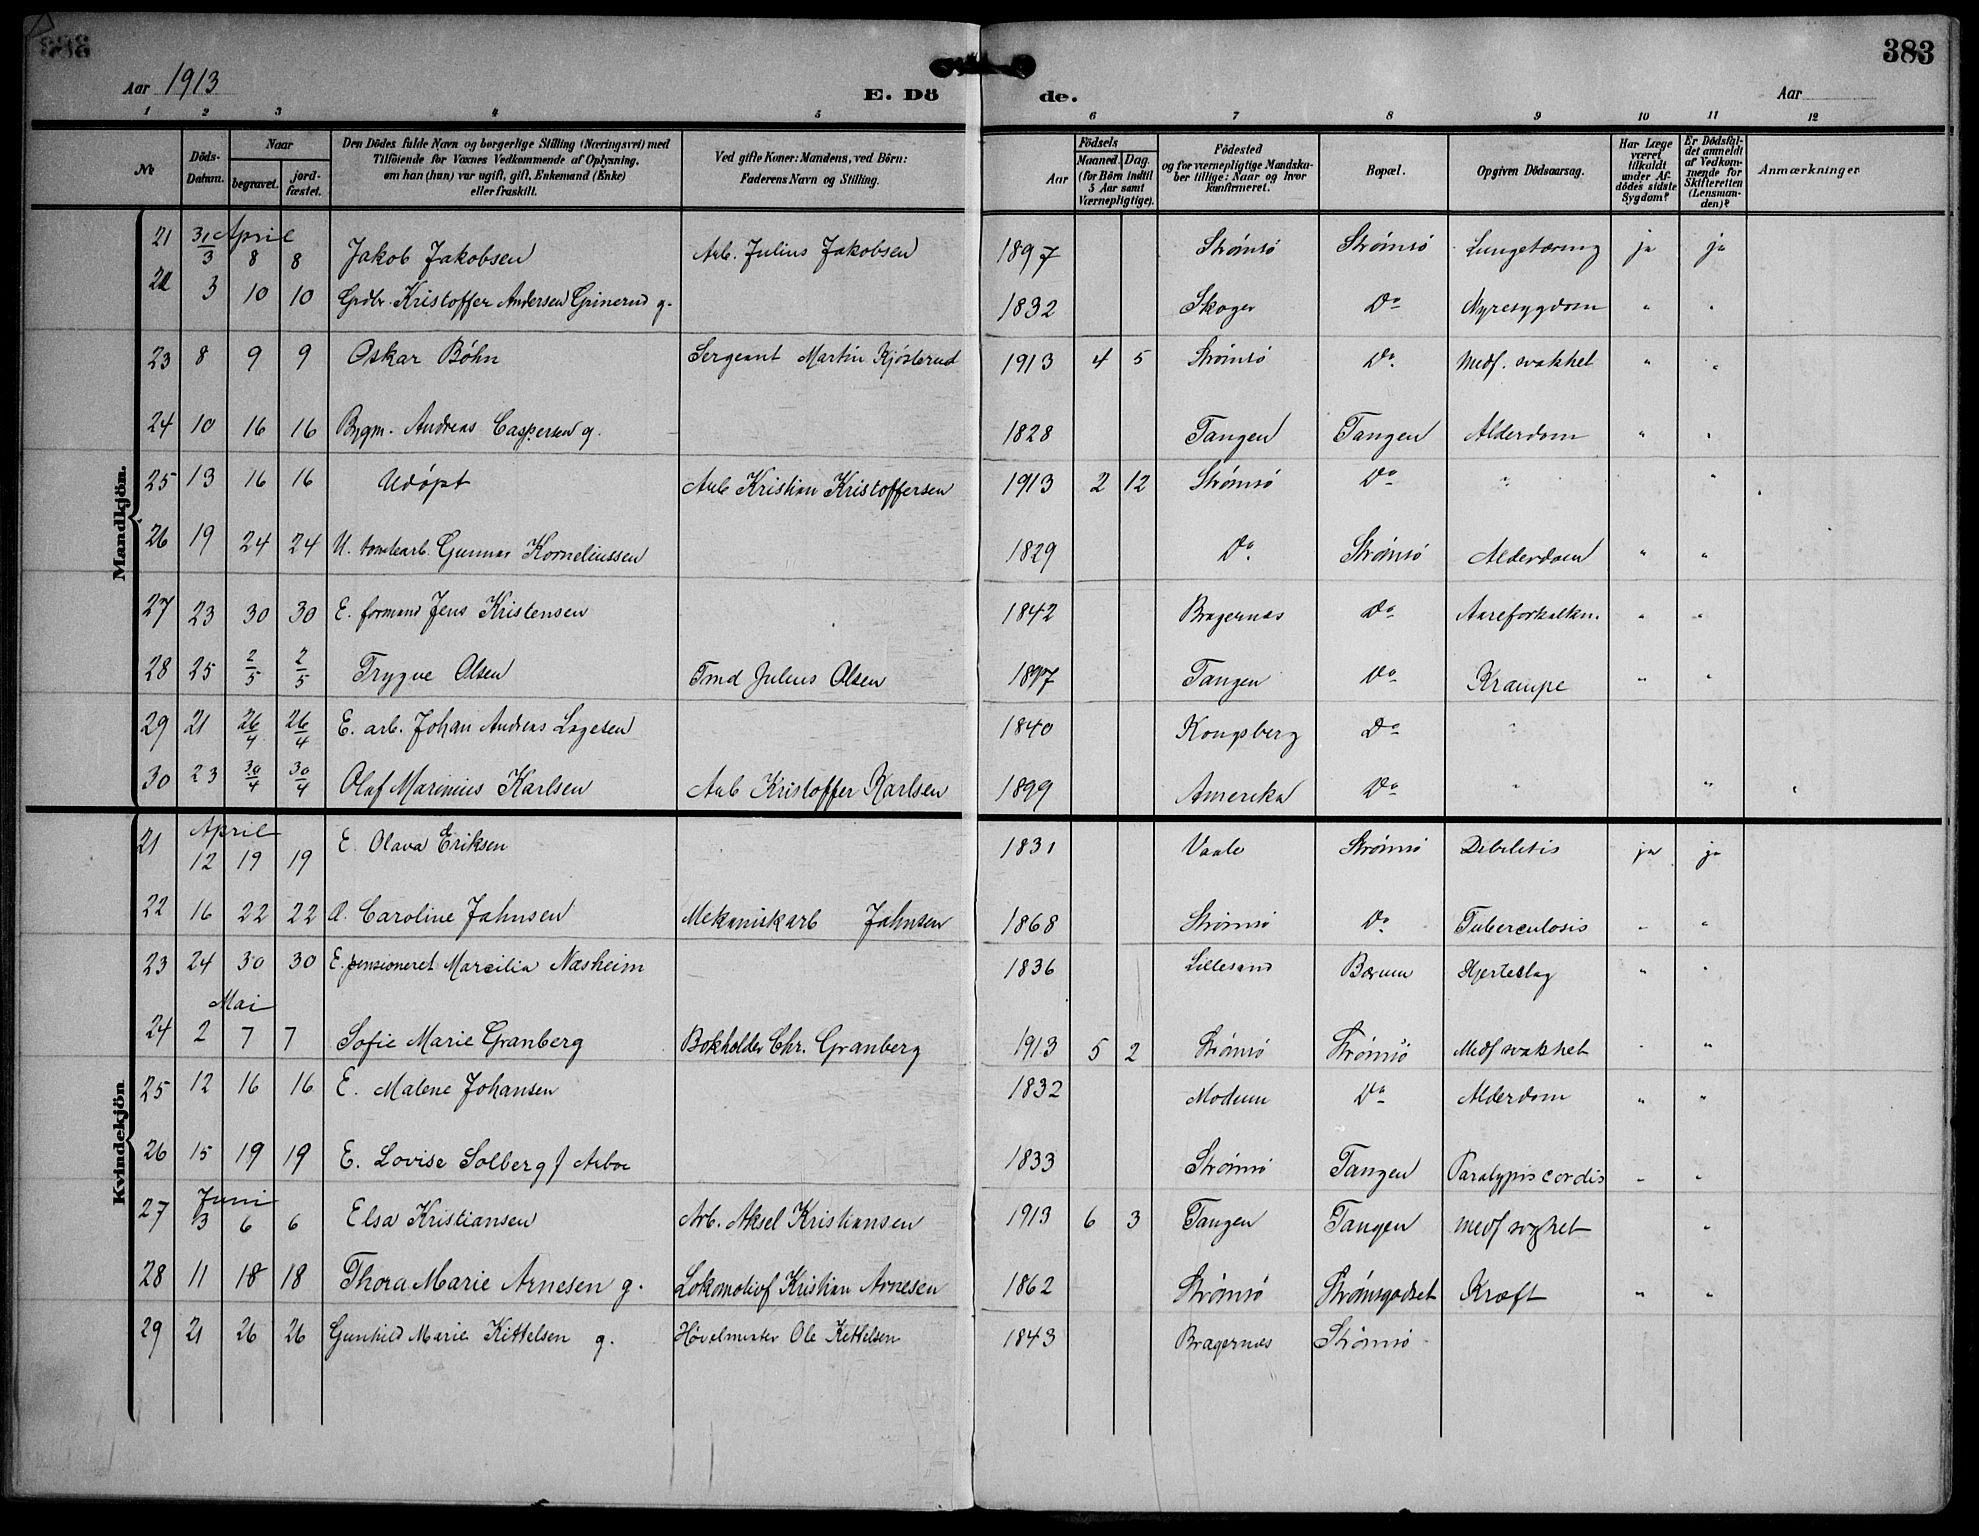 383
Aar 1913 E. Döde. Aar
1 2 3 4 5 6 7 8 9 10 11 12
№ | Döds-Datum. | Naar begravet. | jordfæstet. | Den Dödes fulde Navn og borgerlige Stilling (Næringsvei) med Tilföiende for Voxnes Vedkommende af Oplysning, om han (hun) var ugift, gift, Enkemand (Enke) eller fraskilt. | Ved gifte Koner: Mandens, ved Börn: Faderens Navn og Stilling. | Födsels Aar | Maaned. Dag. (for Börn indtil 5 Aar samt Værnepligtige). | Födested og for værnepligtige Mandskaber tillige: Naar og hvor konfirmeret. | Bopæl. | Opgiven Dödsaarsag. | Har Læge været tilkaldt under Afdödes sidste Sygdom? | Er Dödsfaldet anmeldt af Vedkommende for Skifteretten (Lensmanden)? | Anmærkninger
Mandkjön.
April
21 31/3 8 8 Jakob Jakobsen Arb. Julius Jakobsen 1897 Strømsö Strømsö Lungetæring ja ja
22 3 10 10 Grdbr. Kristoffer Andersen Grinerud g. 1832 Skoger Do Nyresygdom " "
23 8 9 9 Oskar Bøhn Sergeant Martin Kjøsterud 1913 4 5 Strømsö Do. Medf. svakhet " "
24 10 16 16 Bygm. Andreas Caspersen g. 1828 Tangen Tangen Alderdom " "
25 13 16 16 Udøpt Arb Kristian Kristoffersen 1913 2 12 Strømsö Do " "
26 19 24 24 U. Gunnar Korneliussen 1829 Do. Strømsö Alderdom " "
27 23 30 30 E. formand Jens Kristensen 1842 Bragernæs Do Aareforkalkn. " "
28 25 2/5 2/5 Trygve Olsen Tmd Julius Olsen 1897 Tangen Do Krampe " "
29 21 26/4 26/4 E. arb. Johan Andreas Lagesen 1840 Kongsberg Do "
30 23 30/4 30/4 Olaf Marinius Karlsen Arb Kristoffer Karlsen 1899 Amerika Do " "
Kvindekjön
April
21 12 19 19 E. Olava Eriksen 1831 Vaale Strømsö Debilitis ja ja
22 16 22 22 Caroline Jahnsen Mekaniskarb Jahnsen 1868 Strømsö Do Tuberculosis " "
23 24 30 30 E. pensioneret Marcilia Næsheim 1836 Lillesand Bærum Hjerteslag " "
Mai
24 2 7 7 Sofie Marie Granberg Bokholder Chr. Granberg 1913 5 2 Strømsö Strømsö Medf svakhet " "
25 12 16 16 E. Malene Johansen 1832 Modum Do Alderdom " "
26 15 19 19 E. Lovise Solberg f Arboe 1833 Strømsö Tangen Paralypis cordis " "
Juni
27 3 6 6 Elsa Kristiansen Arb. Aksel Kristiansen 1913 6 3 Tangen Tangen medf svakhet "
28 11 18 18 Thora Marie Arnesen g. Lokomotivf Kristian Arnesen 1862 Strømsö Strømsgodset Kræft " "
29 21 26 26 Gunhild Marie Kittelsen g. Høvelmester Ole Kittelsen 1843 Bragernæs Strømsö